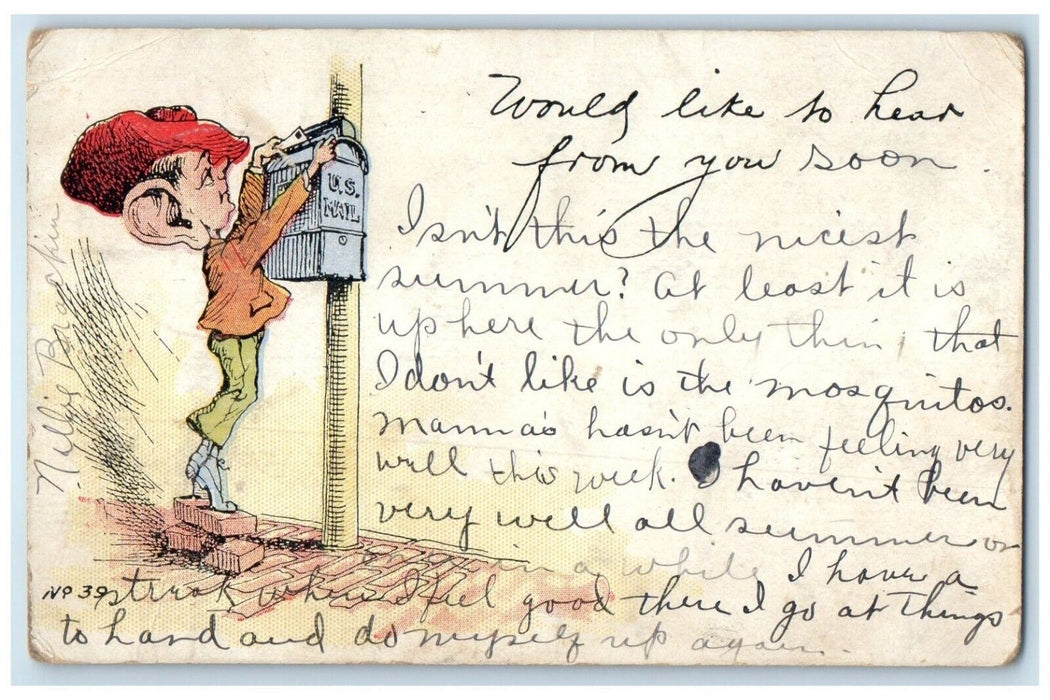 Would like to hear
from you soon.
U.S.
MAIL
Isn't this the nicest
summer? At least it is
up here the only thin, that
I don't like is the mosquitos.
Mamma's hasn't been feeling very
well this week. I haven't been
very well all summer or
in a while I have a
No 39 streak when I feel good there I go at things
to hard and do myself up again.
Nellie